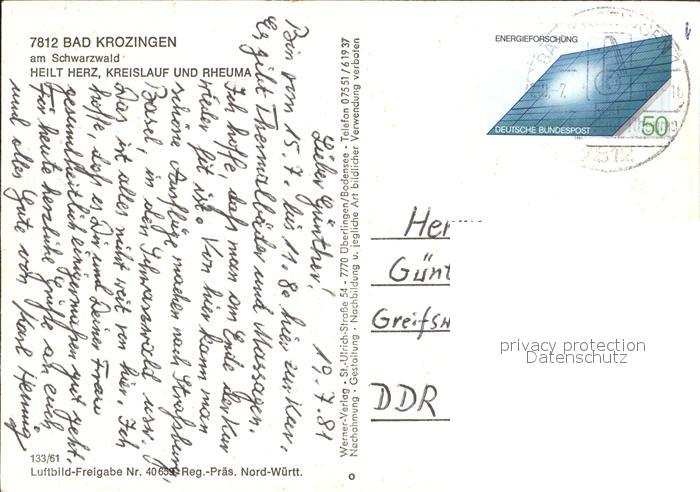 7812 BAD KROZINGEN
am Schwarzwald
HEILT HERZ, KREISLAUF UND RHEUMA
19.7.81
Lieber Günther!
Bin vom 15.7. bis 11.8. hier zur Kur.
Es gibt Thermalbäder und Massagen.
Ich hoffe, daß man am Ende der Kur
wieder fit ist. Von hier kann man
schöne Ausflüge machen nach Straßburg,
Basel, in den Schwarzwald usw.
Das ist alles nicht weit von hier. Ich
hoffe, daß es Dir und Deiner Frau
gesundheitlich einigermaßen gut geht.
Für heute herzliche Grüße an euch
und alles Gute von Karl Hennig
133/61
Luftbild-Freigabe Nr. 40 Reg.-Präs. Nord-Württ.
Werner-Verlag - St.-Ulrich-Straße 54 - 7770 Überlingen/Bodensee - Telefon 07551/61937
Nachahmung - Gestaltung - Nachbildung u. jegliche Art bildlicher Verwendung verboten
ENERGIEFORSCHUNG
DEUTSCHE BUNDESPOST
50
Her
Günt
Greifsw
DDR
privacy protection
Datenschutz